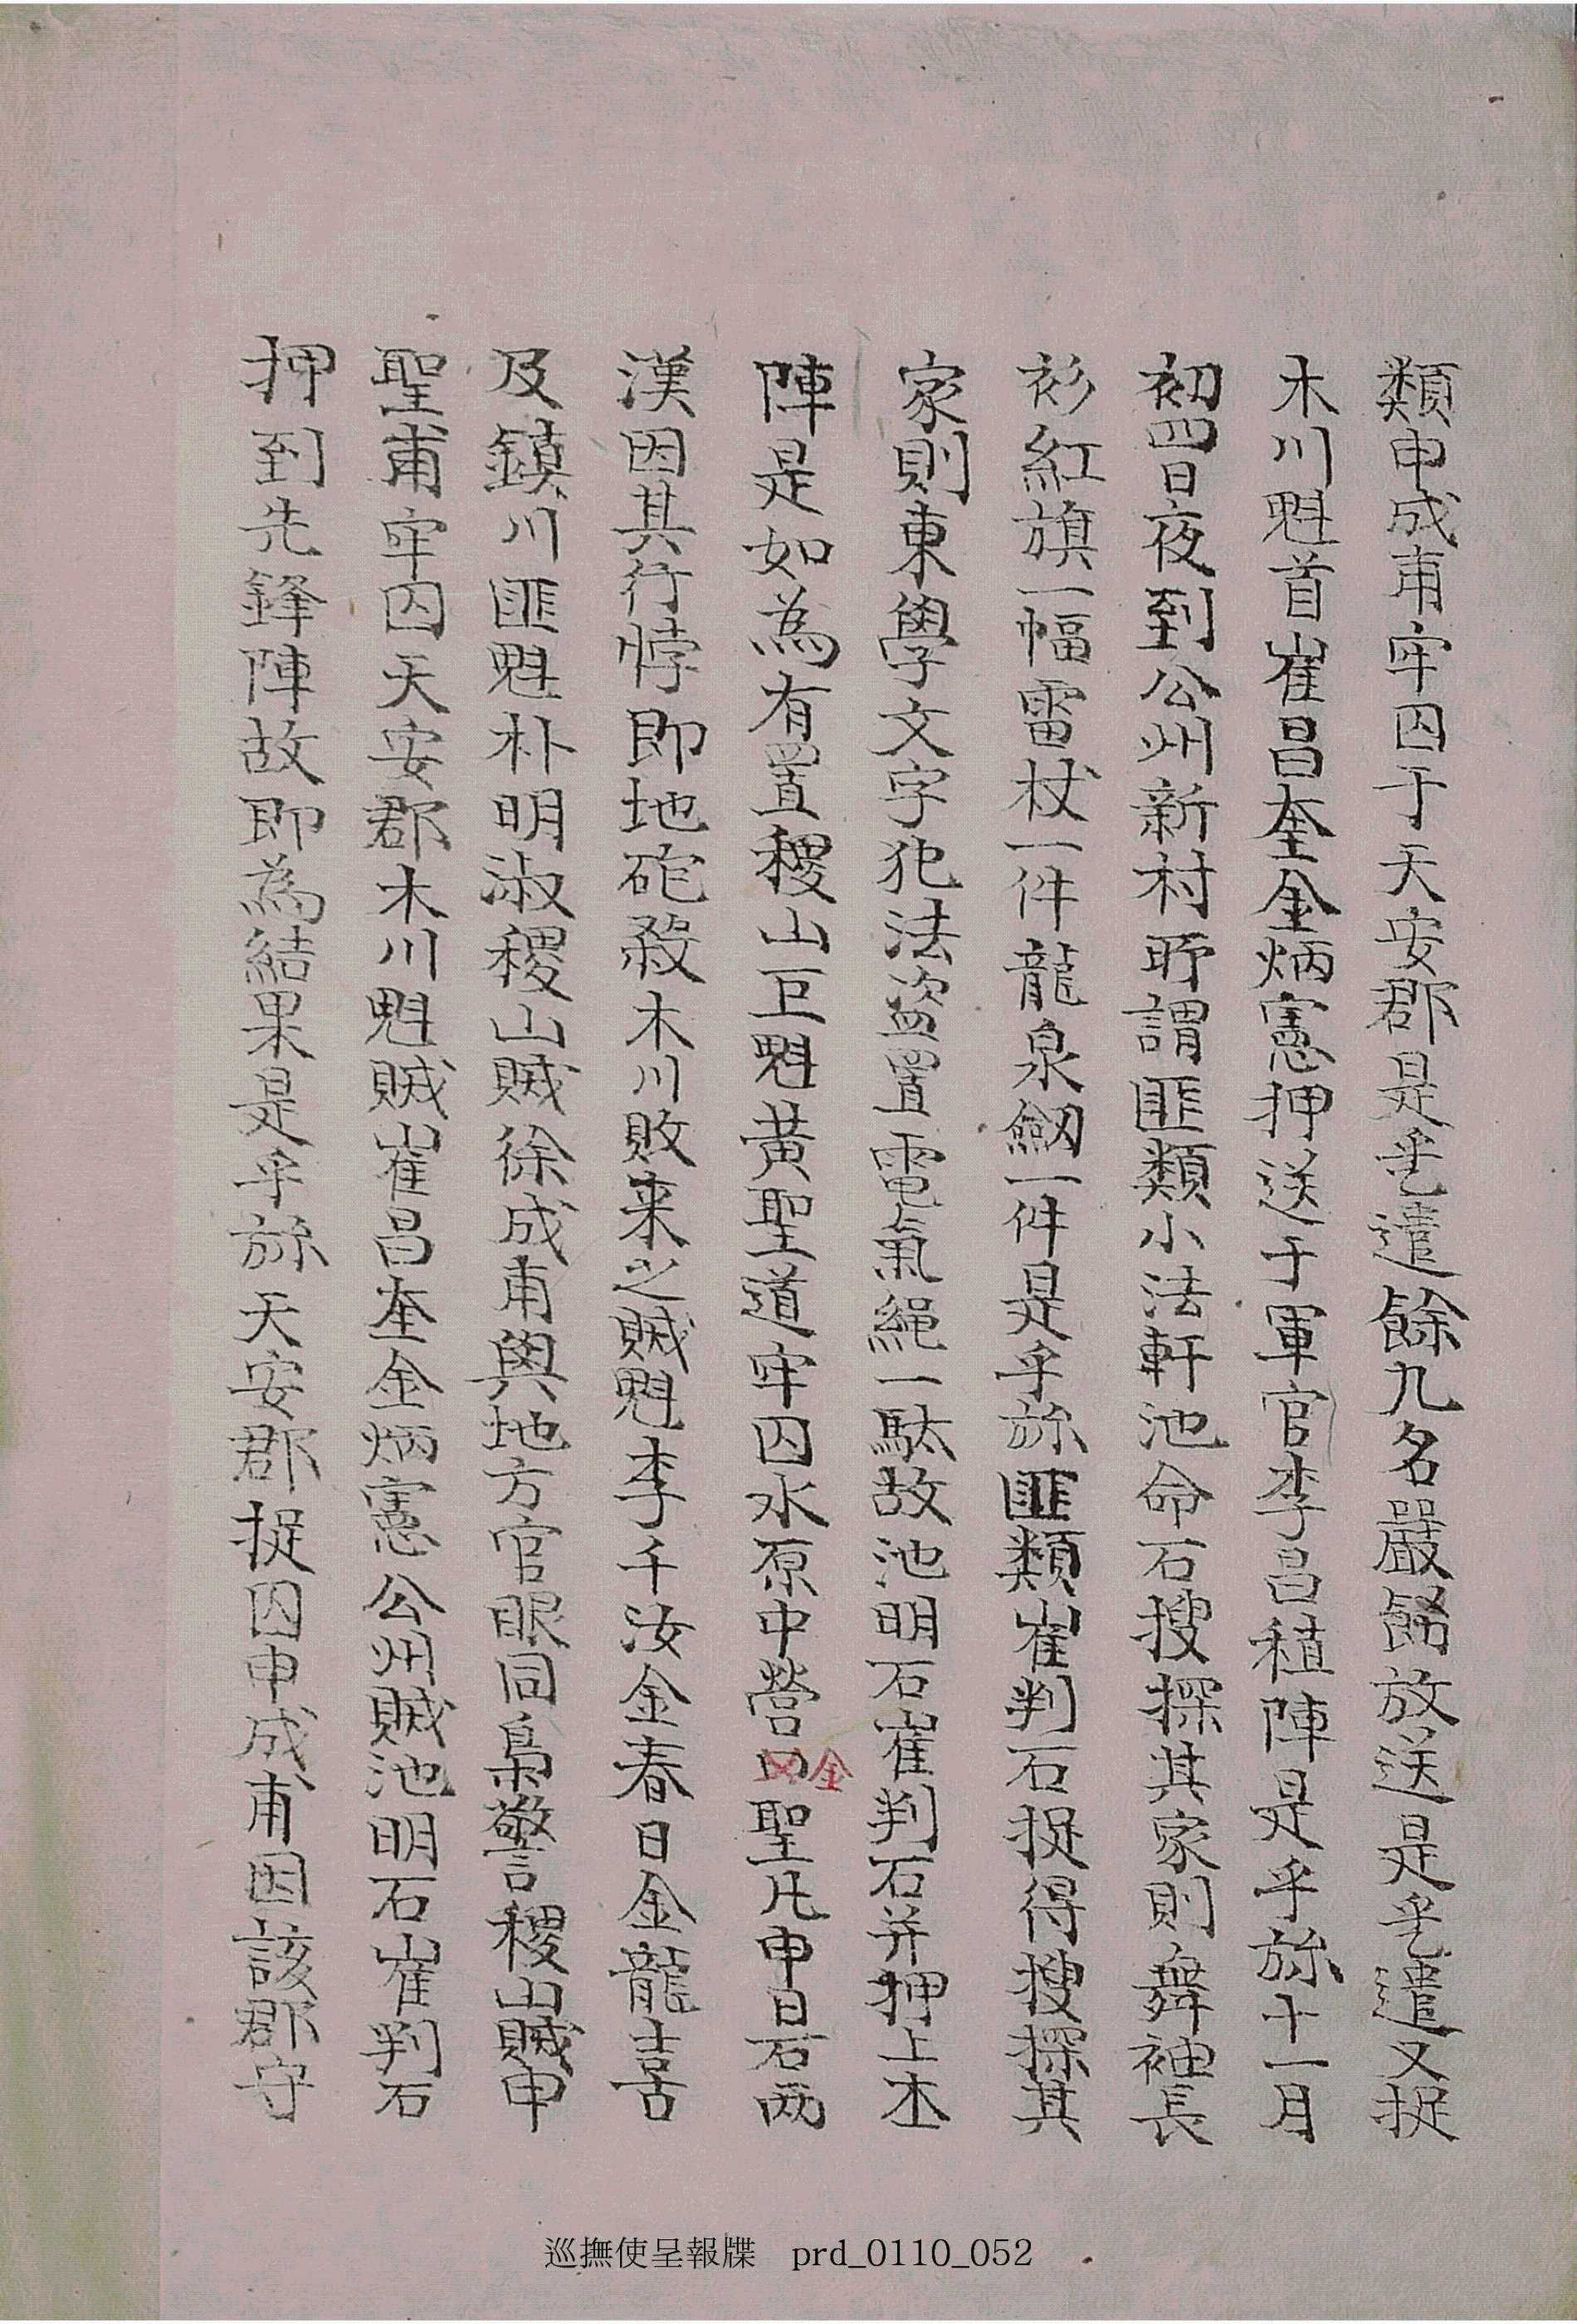 類申成甫牢囚于天安郡是乎遣餘九名嚴飭放送是乎遣又捉
木川魁首崔昌奎金炳憲押送于軍官李昌稙陣是乎旀十一月
初四日夜到公州新村所謂匪類小法軒池命石搜探其家則舞袖長
衫紅旗一幅雷杖一件龍泉劒一件是乎旀匪類崔判石捉得搜探其
家則東學文字犯法盜置電氣縄一駄故池明石崔判石并押上本
陣是如為有置稷山巨魁黃聖道牢囚水原中營金聖凡申日石两
漢因其行悖即地砲殺木川敗来之賊魁李千汝金春日金龍喜
及鎮川匪魁朴明淑稷山賊徐成甫與地方官眼同梟警稷山賊申
聖甫牢囚天安郡木川魁賊崔昌奎金炳憲公州賊池明石崔判石
押到先鋒陣故即為結果是乎旀天安郡捉囚申成甫因該郡守
巡撫使呈報牒 prd_0110_052